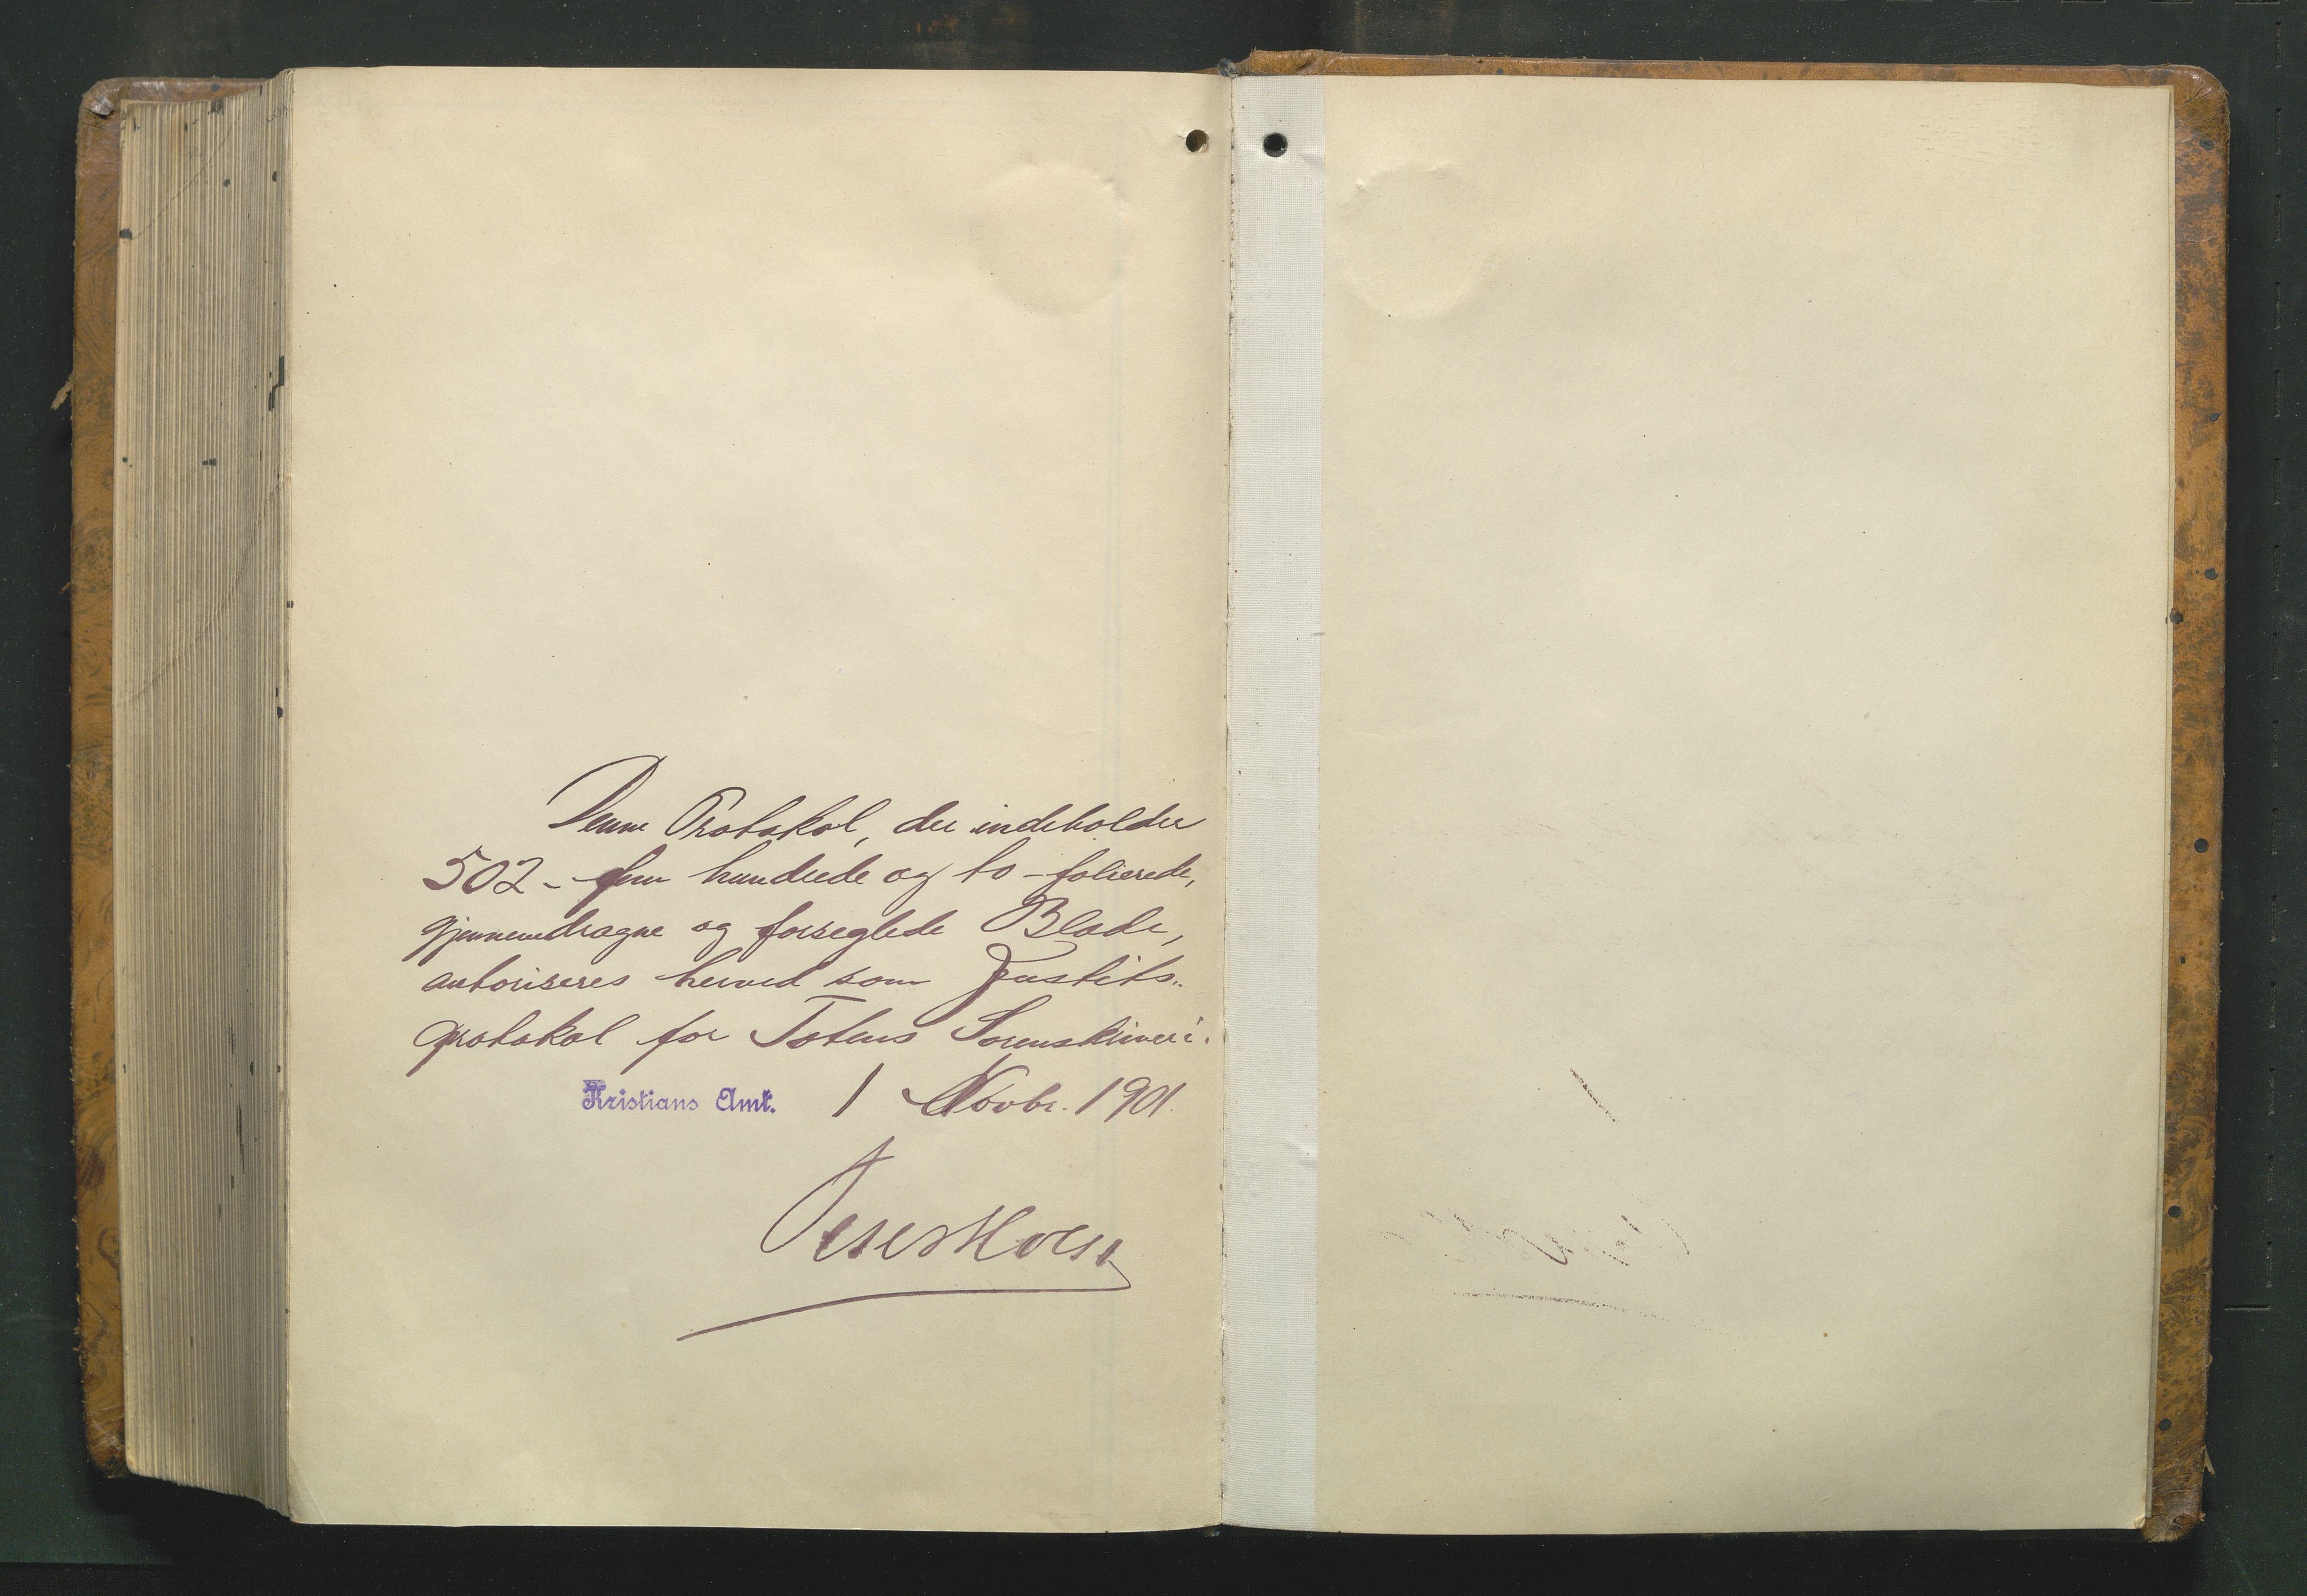 Denne Protokol, der indeholder
502 - fem hundrede og to - folierede,
gjennemdragne og forseglede Blade,
autoriseres herved som Justits-
protokol for Totens Sorenskriveri.
Kristians Amt. 1 Novbr. 1901.
Peter Holst